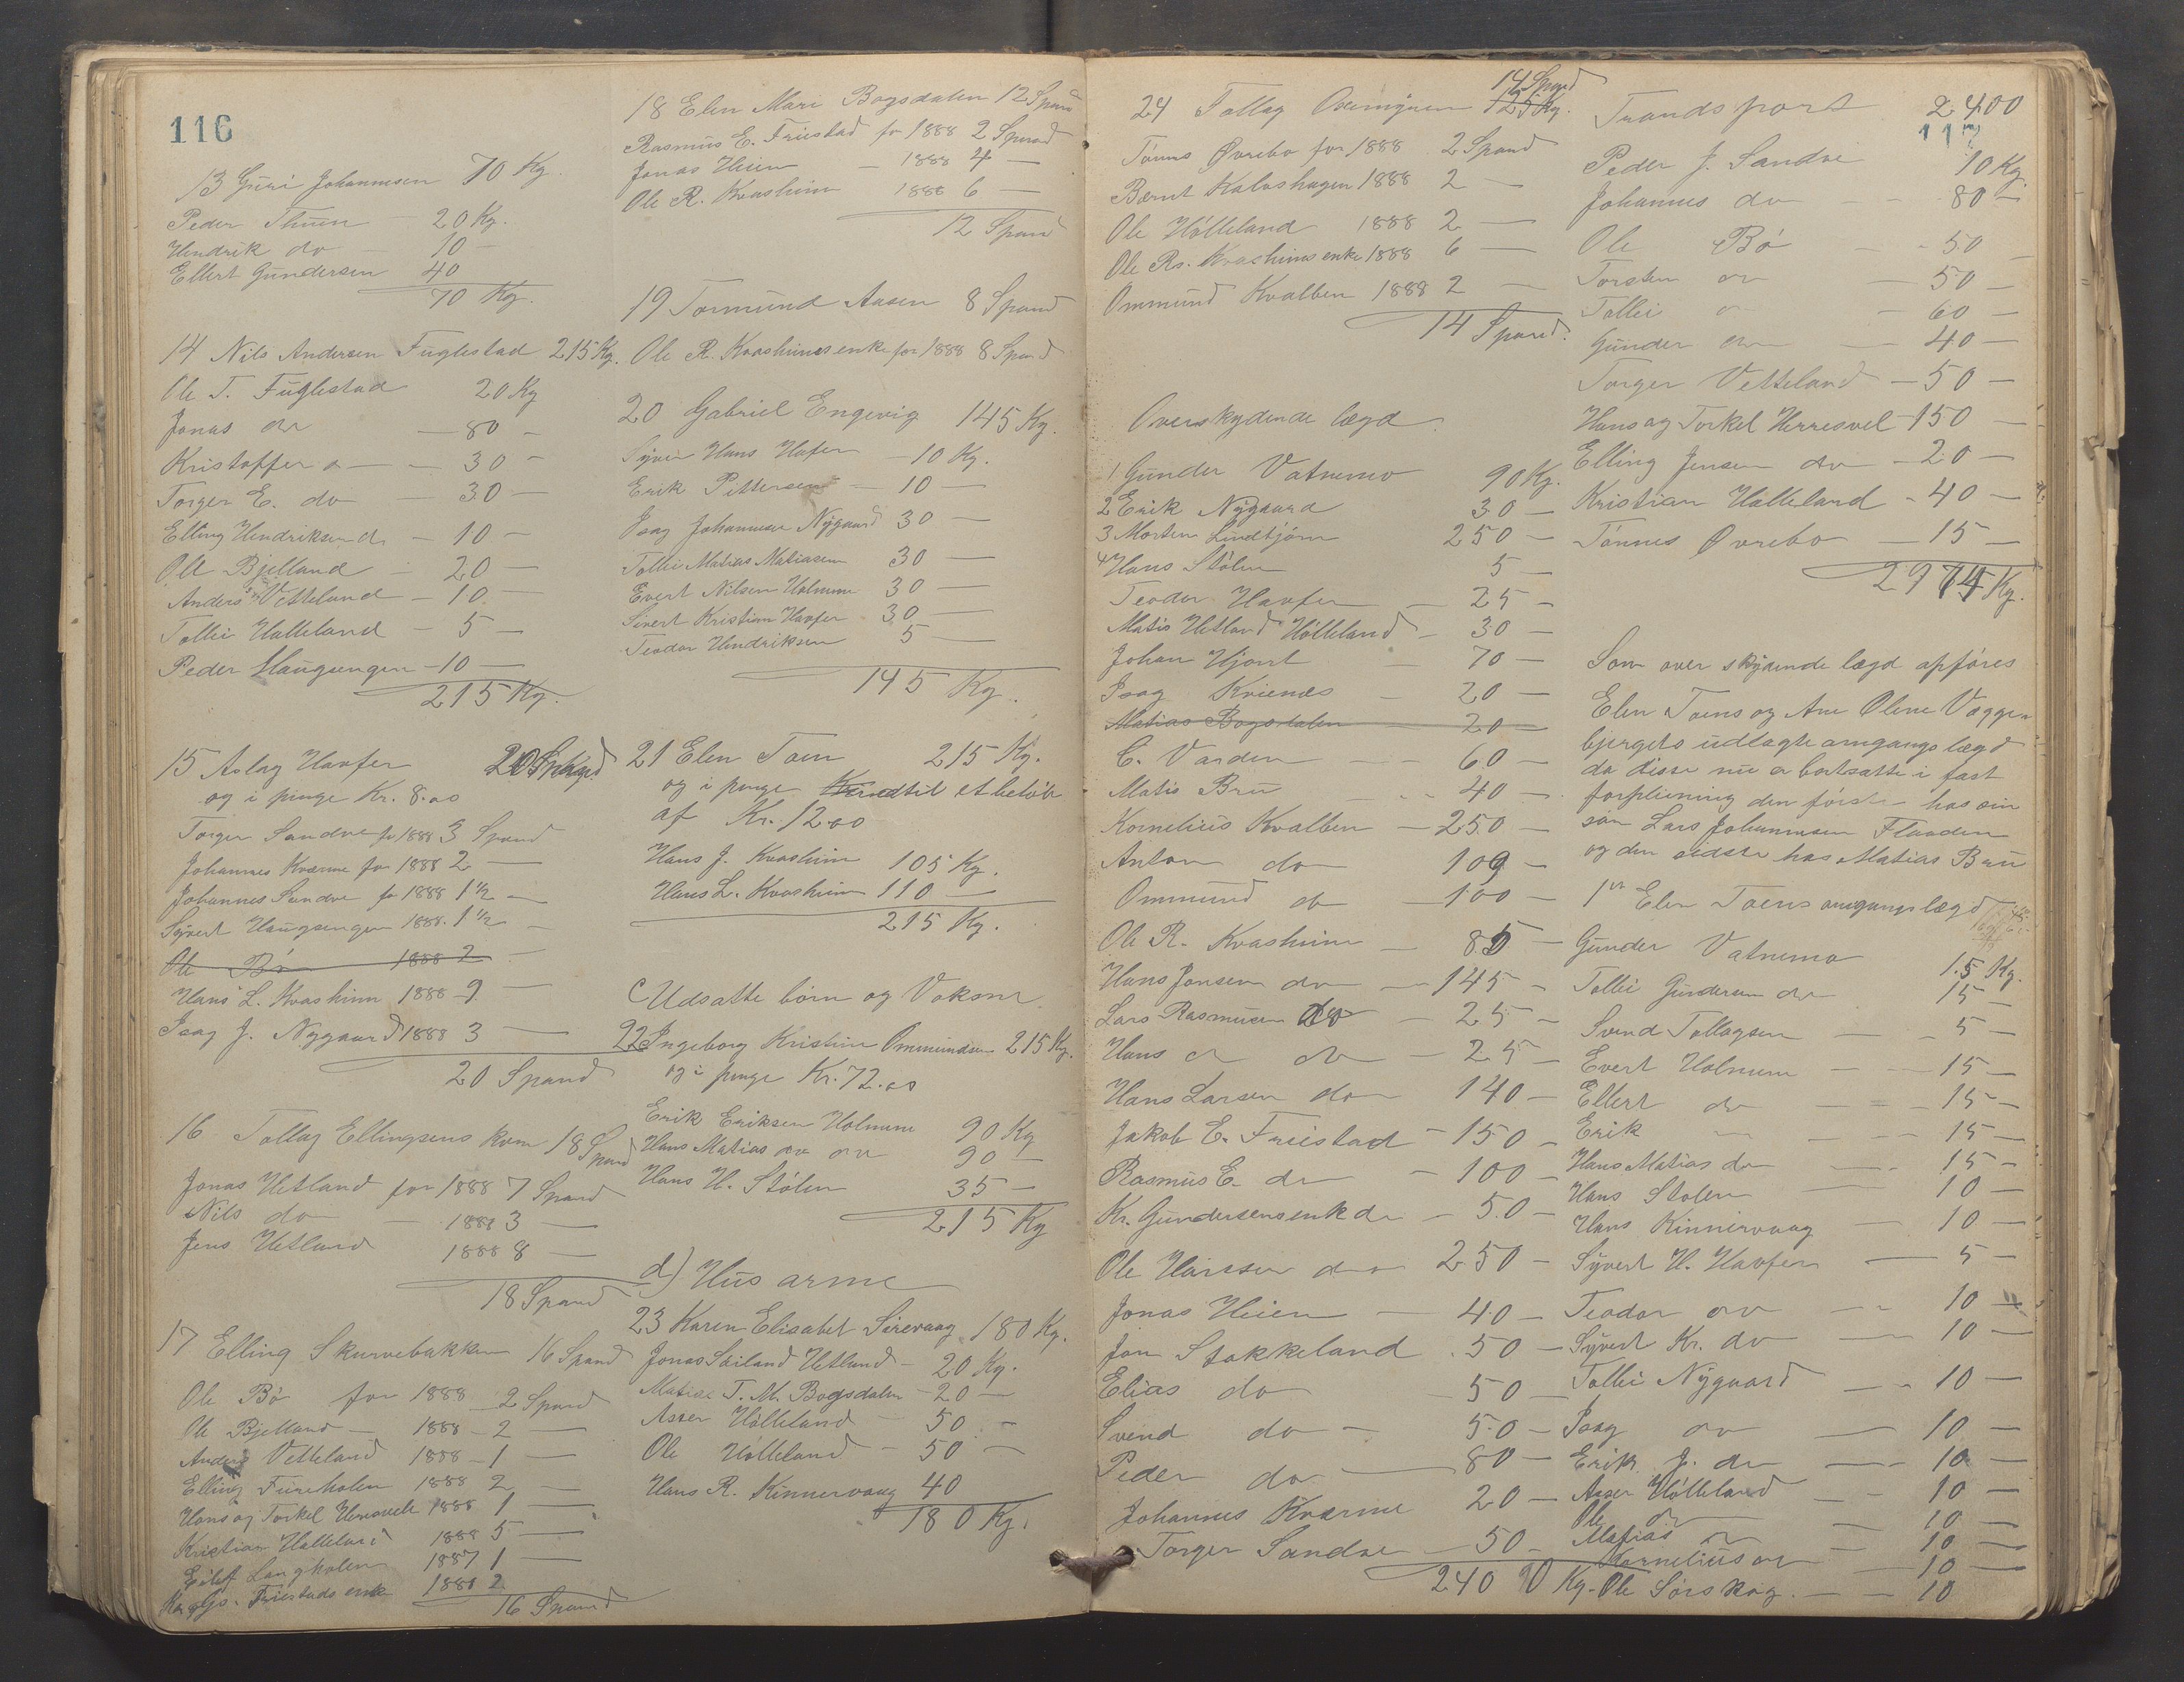 116
13 Guri Johannesen 70 Kg.
Peder Thuen - 20 Kg.
Hendrik do - 10 -
Ellert Gundersen 40
70 Kg.
14 Nils Andersen Fuglestad 215 Kg.
Ole T. Fuglestad 20 Kg
Jonas do - 80 -
Kristoffer do - 30 -
Torger E. do - 30 -
Elling Hendriksen do - 10 -
Ole Bjelland - 20 -
Anders Vetteland - 10 -
Tollei Halleland - 5 -
Peder Haugsengen - 10 -
215 Kg.
15 Aslag Havfer 20 Spand
og i penge Kr. 8.00
Torger Sandve for 1888 3 Spand
Johannes Kværme for 1888 2 -
Johannes Sandve for 1888 1 1/2 -
Syvert Haugsengen 1888. 1 1/2 -
Ole Bø 1888 2 -
Hans L. Kvashiem 1888 9 -
Isag J. Nygaard 1888 3 -
20 Spand
16 Tollag Ellingsens kone 18 Spand
Jonas Hetland for 1888 7 Spand
Nils do - 1888 3 -
Jens Hetland 1888 8 -
18 Spand
17 Elling Skurvebakken 16 Spand
Ole Bø for 1888 2 Spand
Ole Bjelland - 1888 - 2 -
Anders Vetteland 1888 - 1 -
Elling Fureholen 1888 2 -
Hans og Torkel Herresvele 1888 1 -
Kristian Halleland 1888 5 -
Eilef Langholen 1887 1 -
Friestads enke 1888 2
16 Spand
18 Elen Mari Bogsdalen 12 Spand
Rasmus E. Friestad for 1888 2 Spand
Jonas Heien - 1888 4 -
Ole R. Kvashiem 1888 6 -
12 Spand
19 Tormund Aasen 8 Spand
Ole R. Kvashiems enke for 1888 8 Spand
20 Gabriel Engevig 145 Kg.
Syver Hans Hafer - 10 Kg.
Erik Pettersen - 10 -
Isag Johannesen Nygaard 30 -
Tollei Matias Matiasen 30 -
Evert Nilsen Holmene 30 -
Sivert Kristian Havfer 30 -
Teodor Hendriksen 5 -
145 Kg.
21 Elen Toen 215 Kg.
og i penge et beløb
af Kr. 12.00
Hans J. Kvashiem 105 Kg.
Hans L. Kvashiem 110 -
215 Kg.
c Udsatte børn og Voksne
22 Ingeborg Kristine Ommundsen 215 Kg.
og i penge Kr. 72.00
Erik Eriksen Holmene 90 Kg
Hans Matias do do 90 -
Hans H. Stølen 35 -
215 Kg
d) Husarme
23 Karen Elisabet Sirevaag 180 Kg.
Jonas Skiland Hetland - 20 Kg.
Matias T. M. Bogsdalen - 20 -
Asser Hølleland - 50 -
Ole Hølleland - 50 -
Hans R. Kinnervaag 40
180 Kg.
14 Spand
24 Tollag Ovemyren 125 Kg.
Tønnes Øvrebø for 1888 2 Spand
Bærnt Kalvshagen 1888 2 -
Ole Hølleland 1888 2 -
Ole Rs. Kvashiems enke 1888 6 -
Ommund Kvalben 1888 2 -
14 Spand.
Overskydende lægd.
1 Gunder Vatnemo 90 Kg.
2 Erik Nygaard 30 -
3 Morten Lindtjørn 250 -
4 Hans Stølen 5 -
Teodor Havfer - 25 -
Matis Hetland Hølleland - 30 -
Johan Hjort - 70 -
Isag Kvienæs - 20 -
Matias Bogsdalen 20 -
C. Varden - 60 -
Matis Bru - 40 -
Kornelius Kvalben - 250 -
Anton do 109 -
Ommund do - 100 -
Ole R. Kvashiem - 85 -
Hans Jonsen do - 145 -
Lars Rasmusen do - 25 -
Hans do do - 25 -
Hans Larsen do 140 -
Jakob E. Friestad - 150 -
Rasmus E. do - 100 -
Kr. Gundersens enke do - 50 -
Ole Hansen do 250 -
Jonas Heien - 40 -
Jon Stokkeland 50 -
Elias do - 50 -
Svend do - 50 -
Peder do - 80 -
Johannes Kværme 20 -
Torger Sandve - 50 -
240 0 Kg.
Trandsport 2400
117
Peder J. Sandve 10 Kg.
Johannes do - - 80 -
Ole Bø - - 50 -
Torsten do - 50 -
Tollei do - 60 -
Gunder do - 40 -
Torger Vetteland - 50 -
Hans og Torkel Herresvel - 150 -
Elling Jensen do - 20 -
Kristian Halleland - 40 -
Tønnes Øvrebø - 15 -
2975 Kg.
Som over skydende lægd opføres
Elen Toens og Ane Olene Vagge-
bjergets udlagte omgangslægd
da disse nu er bortsatte i fast
forpleining den første hos sin
søn Lars Johannesen Flaaden
og den sidste hos Matias Bru
1ste Elen Toens omgangslægd
Gunder Vatnemo 15 Kg.
Tollei Gundersen do 15 -
Svend Tollagsen - 5 -
Evert Holmene - 15 -
Ellert do - 15 -
Erik - - 15 -
Hans Matias do - 15 -
Hans Stølen - 10 -
Hans Kinnervaag - 10 -
Syvert H. Havfer - 5 -
Teodor do - 10 -
Syvert Kr. do - 10 -
Tollei Nygaard - 10 -
Isag do - 10 -
Erik J. do - 10 -
Asser Hølleland - 10 -
Ole do - 10 -
Matias do - 10 -
Kornelius do - 10 -
Ole Sørskog. - 10